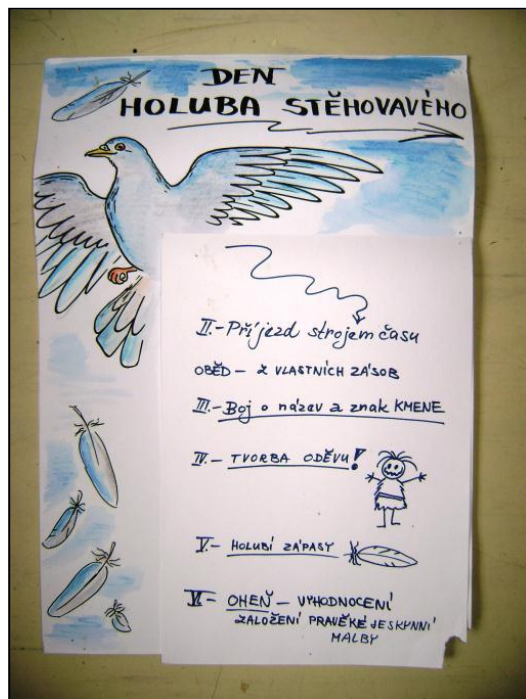 DEN
HOLUBA STĚHOVAVÉHO
II.-Příjezd strojem času
OBĚD - Z VLASTNÍCH ZÁSOB
III.- Boj o název a znak KMENE
IV.- TVORBA ODĚVU!
V.- HOLUBÍ ZÁPASY
VI- OHEŇ - VYHODNOCENÍ
ZALOŽENÍ PRAVĚKÉ JESKYNNÍ
MALBY